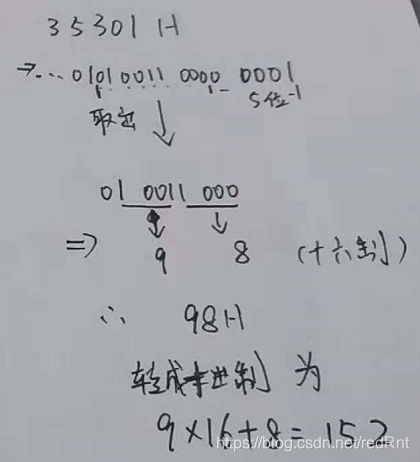 35301H
→... 0101 0011 0000 0001
5位-1
取出
01 0011 000
⇒ 9 8 (十六制)
∴ 98H
转成十进制为
9×16+8=152
https://blog.csdn.net/redRnt